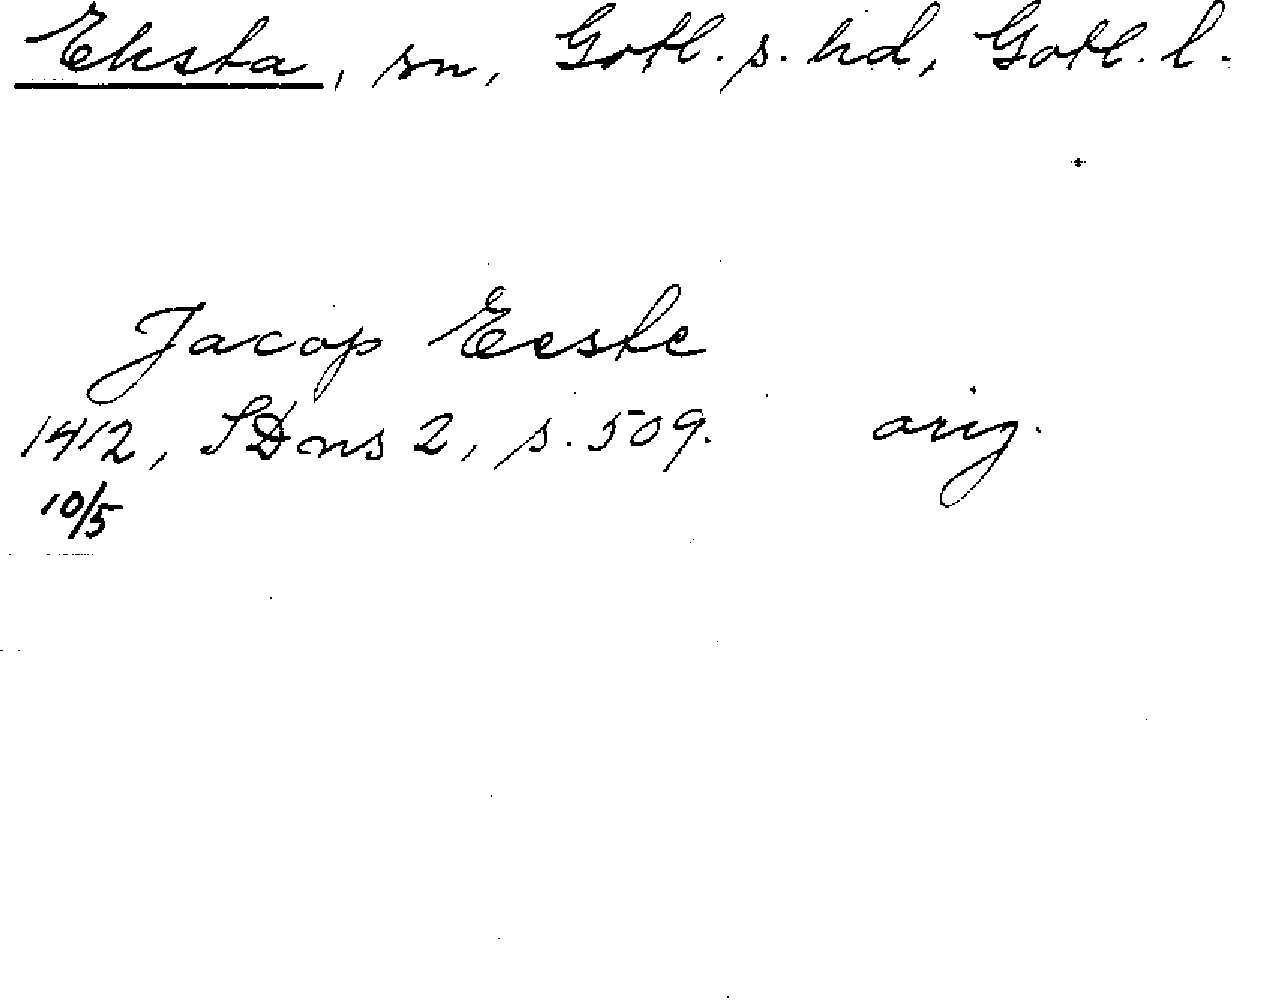 Eksta, sn, Gotl. s. hd, Gotl. l.
Jacop Eeste
1412, SD ns 2, s. 509. orig.
10/5